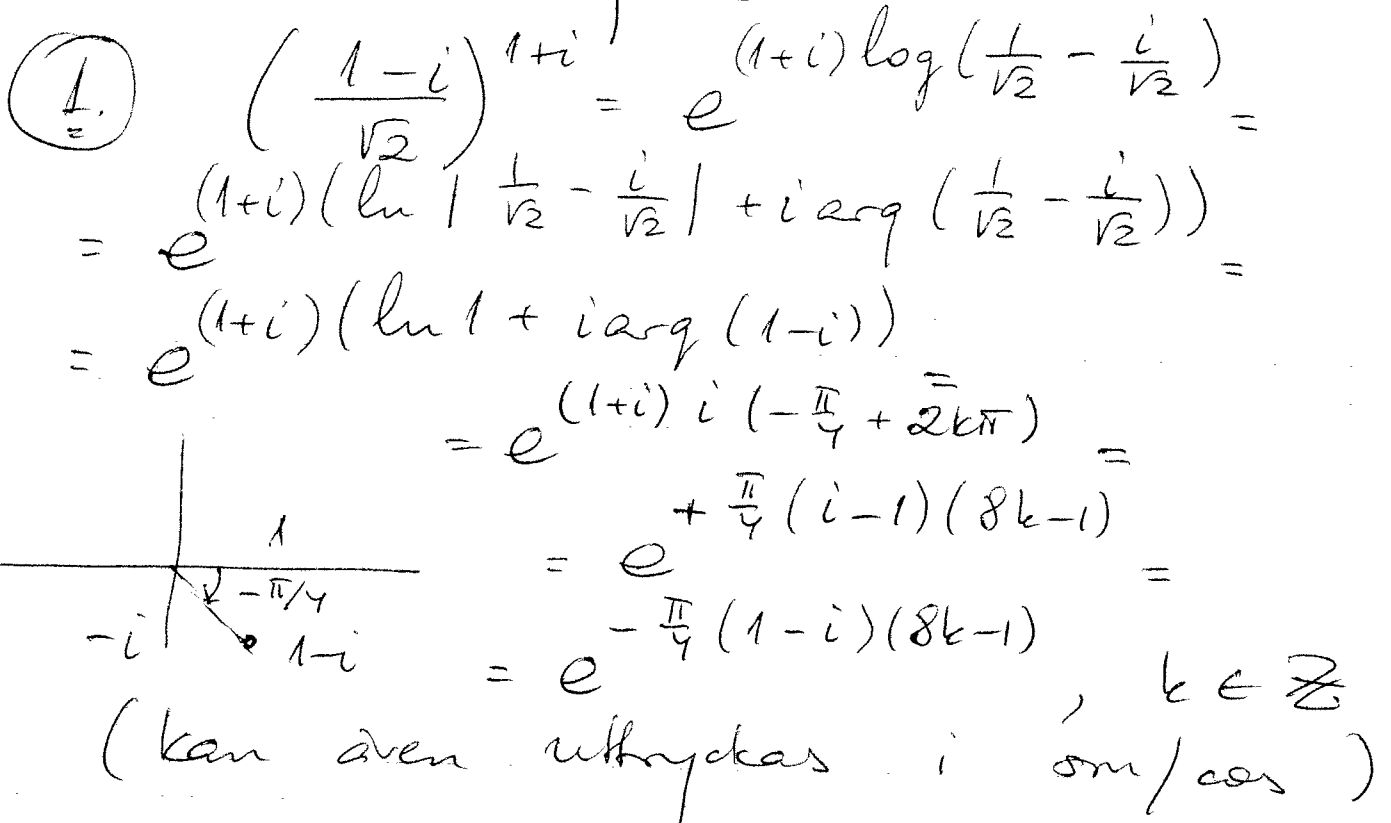 1. ((1-i)/√2)^(1+i) = e^((1+i) log(1/√2 - i/√2)) =
= e^((1+i)(ln |1/√2 - i/√2| + i arg (1/√2 - i/√2))) =
= e^((1+i)(ln 1 + i arg (1-i))) =
= e^((1+i) i (-π/4 + 2kπ)) =
= e^(+ π/4 (i-1)(8k-1)) =
1
-π/4
-i
1-i
= e^(- π/4 (1-i)(8k-1)), k ∈ ℤ
(kan även uttryckas i sin/cos)